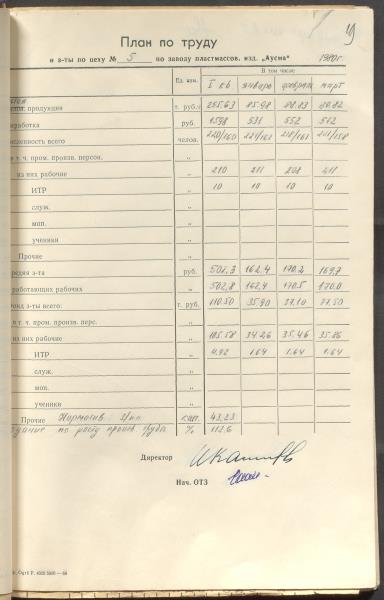 19
План по труду
и з-ты по цеху № 5 по заводу пластмассов. изд. „Аусма" 1980г.
Ед. изм. В том числе
I кв январь февраль март
продукция т. руб. 255.63 85.98
работка руб. 1598 531 552 512
сленность всего челов. 220/160
в т. ч. пром. произв. персон. „
из них рабочие „ 210 211 208 211
ИТР „ 10 10 10 10
служ. „
моп. „
ученики „
Прочие „
редняя з-та руб. 502.3 162.4 170.2 169.7
работающих рабочих „ 502.8 162.4 170.5 170.0
онд з-ты всего: т. руб. 110.50 35.90 37.10 37.50
в т. ч. пром. произв. перс. „
из них рабочие „ 105.58 34.26 35.46 35.86
ИТР „ 4.92 1.64 1.64 1.64
служ. „
моп. „
ученики „
Прочие Норматив з/пл коп. 43.23
по росту произв. труда % 112.6
Директор
Нач. ОТЗ